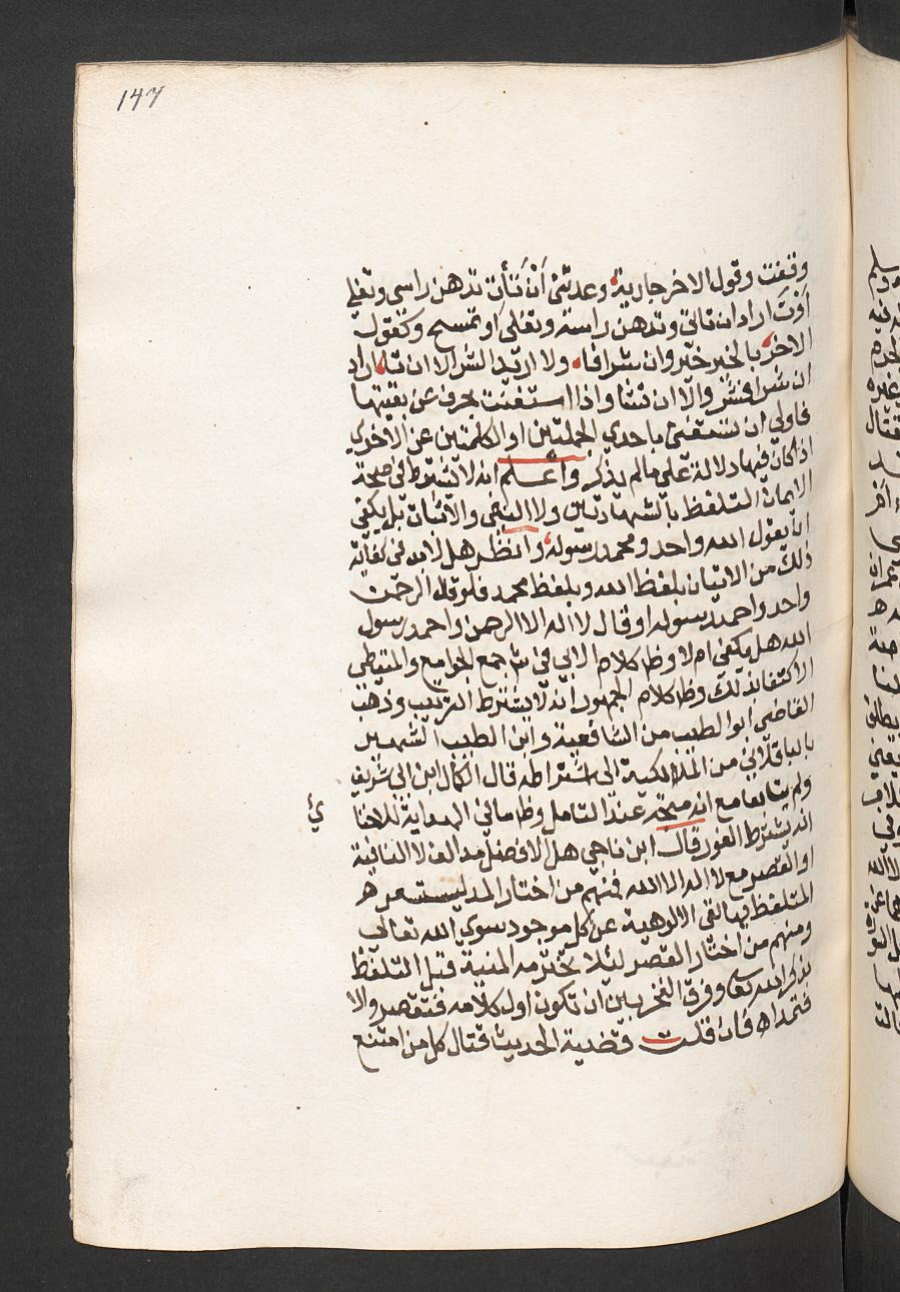 147
وقفت وقول الاخر جارية وعدتني أن تأت تدهن راسي وتفلي
أوتَ اراد ان تاتي وتدهن راسه وتفلي او تمسح وكقول
الاخر بالخير خير وان شرا فا ولا اريد الشر الا ان تا اراد
ان شرا فشر والا ان تشا واذا استغنت بحرف عن بقيتها
فاولى ان تستغني باحدي الجملتين او الكلمتين عن الاخري
اذا كان فيها دلالة علي ما لم يذكر واعلم انه لا يشترط في صحة
الايمان التلفظ بالشهادتين ولا النفي والاثبات بل يكفي
ان يقول الله واحد ومحمد رسوله وانظر هل لابد في كفاية
ذلك من الاتيان بلفظ الله وبلفظ محمد فلو قال الرحمن
واحد واحمد رسوله او قال لا اله الا الرحمن واحمد رسول
الله هل يكفي ام لا وظا كلام الابي في شرح جمع الجوامع والمتيطي
الاكتفا بذلك وظا كلام الجمهور انه لا يشترط الترتيب وذهب
القاضي ابو الطيب من الشافعية وابن الطيب الشهير
بالباقلاني من المالكية الى اشتراطه قال الكمال ابن ابي شريف
ولم يتابعا مع انه متجه عند التامل وظا ما في الهداية للاخا
ئي
انه يشترط الفور قال ابن ناجي هل الافضل مد الف لا النافية
او القصر مع لا اله الا الله فمنهم من اختار المد ليستشعر
المتلفظ بها نفي الالوهية عن كل موجود سوي الله تعالى
ومنهم من اختار القصر لئلا تخترمه المنية قبل التلفظ
بذكر الله تعا وفرق الفخر بين ان تكون اول كلامه فتقصر والا
فتمد اه فان قلت قضية الحديث قتال كل من امتنع